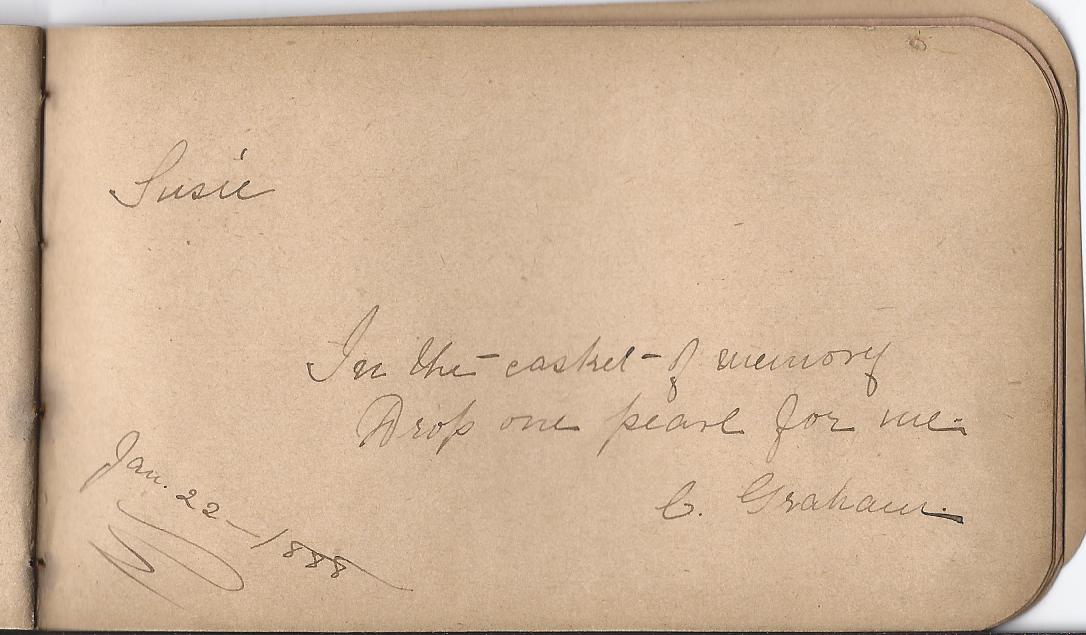 Susie
In the casket of memory
Drop one pearl for me.
C. Graham.
Jan. 22 - 1888